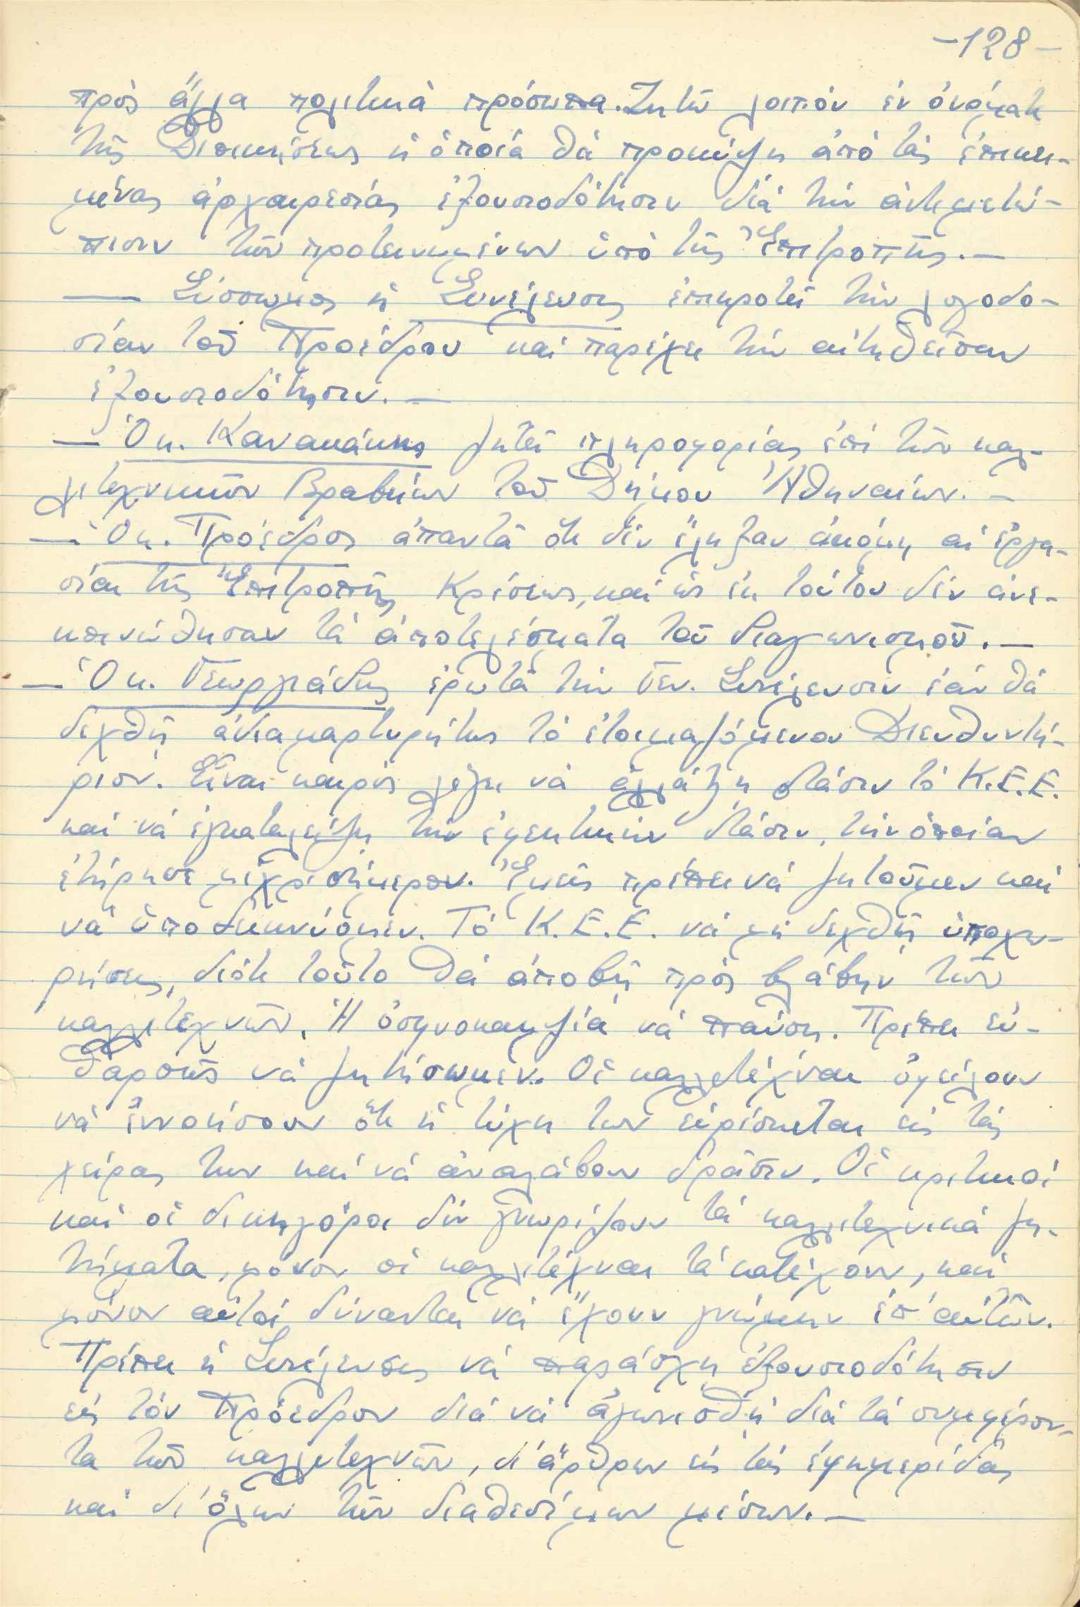 -128-
πρὸς ἄλλα πολιτικὰ πρόσωπα. Ζητῶ λοιπὸν ἐν ὀνόματι
τῆς Διοικήσεως ἡ ὁποία θὰ προκύψῃ ἀπὸ τὰς ἐπικει-
μένας ἀρχαιρεσίας ἐξουσιοδότησιν διὰ τὴν ἀντιμετώ-
πισιν τῶν προτεινομένων ὑπὸ τῆς Ἐπιτροπῆς.—
— Σύσσωμος ἡ Συνέλευσις ἐπικροτεῖ τὴν λογοδο-
σίαν τοῦ Προέδρου καὶ παρέχει τὴν αἰτηθεῖσαν
ἐξουσιοδότησιν.—
— Ὁ κ. Κανακάκης ζητεῖ πληροφορίας ἐπὶ τῶν καλ-
λιτεχνικῶν Βραβείων τοῦ Δήμου Ἀθηναίων.—
— Ὁ κ. Πρόεδρος ἀπαντᾶ ὅτι δὲν ἔληξαν ἀκόμη αἱ ἐργα-
σίαι τῆς Ἐπιτροπῆς Κρίσεως, καὶ ὡς ἐκ τούτου δὲν ἀνε-
κοινώθησαν τὰ ἀποτελέσματα τοῦ διαγωνισμοῦ.—
— Ὁ κ. Γεωργιάδης ἐρωτᾶ τὴν Γεν. Συνέλευσιν ἐὰν θὰ
δεχθῇ ἀδιαμαρτυρήτως τὸ ἑτοιμαζόμενον Διευθυντή-
ριον. Εἶναι καιρὸς λέγει νὰ ἀλλάξῃ στάσιν τὸ Κ.Ε.Ε.
καὶ νὰ ἐγκαταλείψῃ τὴν ἐφεκτικὴν στάσιν, τὴν ὁποίαν
ἐτήρησε μέχρι σήμερον. Ἐμεῖς πρέπει νὰ ζητοῦμεν καὶ
νὰ ὑποδεικνύομεν. Τὸ Κ.Ε.Ε. νὰ μὴ δεχθῇ ὑποχω-
ρήσεις, διότι τοῦτο θὰ ἀποβῇ πρὸς βλάβην τῶν
καλλιτεχνῶν. Ἡ ὀσφυοκαμψία νὰ παύσῃ. Πρέπει εὐ-
θαρσῶς νὰ ζητήσωμεν. Οἱ καλλιτέχναι ὀφείλουν
νὰ ἐννοήσουν ὅτι ἡ τύχη των εὑρίσκεται εἰς τὰς
χεῖρας των καὶ νὰ ἀναλάβουν δρᾶσιν. Οἱ κριτικοὶ
καὶ οἱ δικηγόροι δὲν γνωρίζουν τὰ καλλιτεχνικὰ ζη-
τήματα, μόνον οἱ καλλιτέχναι τὰ κατέχουν, καὶ
μόνον αὐτοὶ δύνανται νὰ ἔχουν γνώμην ἐπ' αὐτῶν.
Πρέπει ἡ Συνέλευσις νὰ παράσχῃ ἐξουσιοδότησιν
εἰς τὸν Πρόεδρον διὰ νὰ ἀγωνισθῇ διὰ τὰ συμφέρον-
τα τῶν καλλιτεχνῶν, δι' ἄρθρων εἰς τὰς ἐφημερίδας
καὶ δι' ὅλων τῶν διαθεσίμων μέσων.—